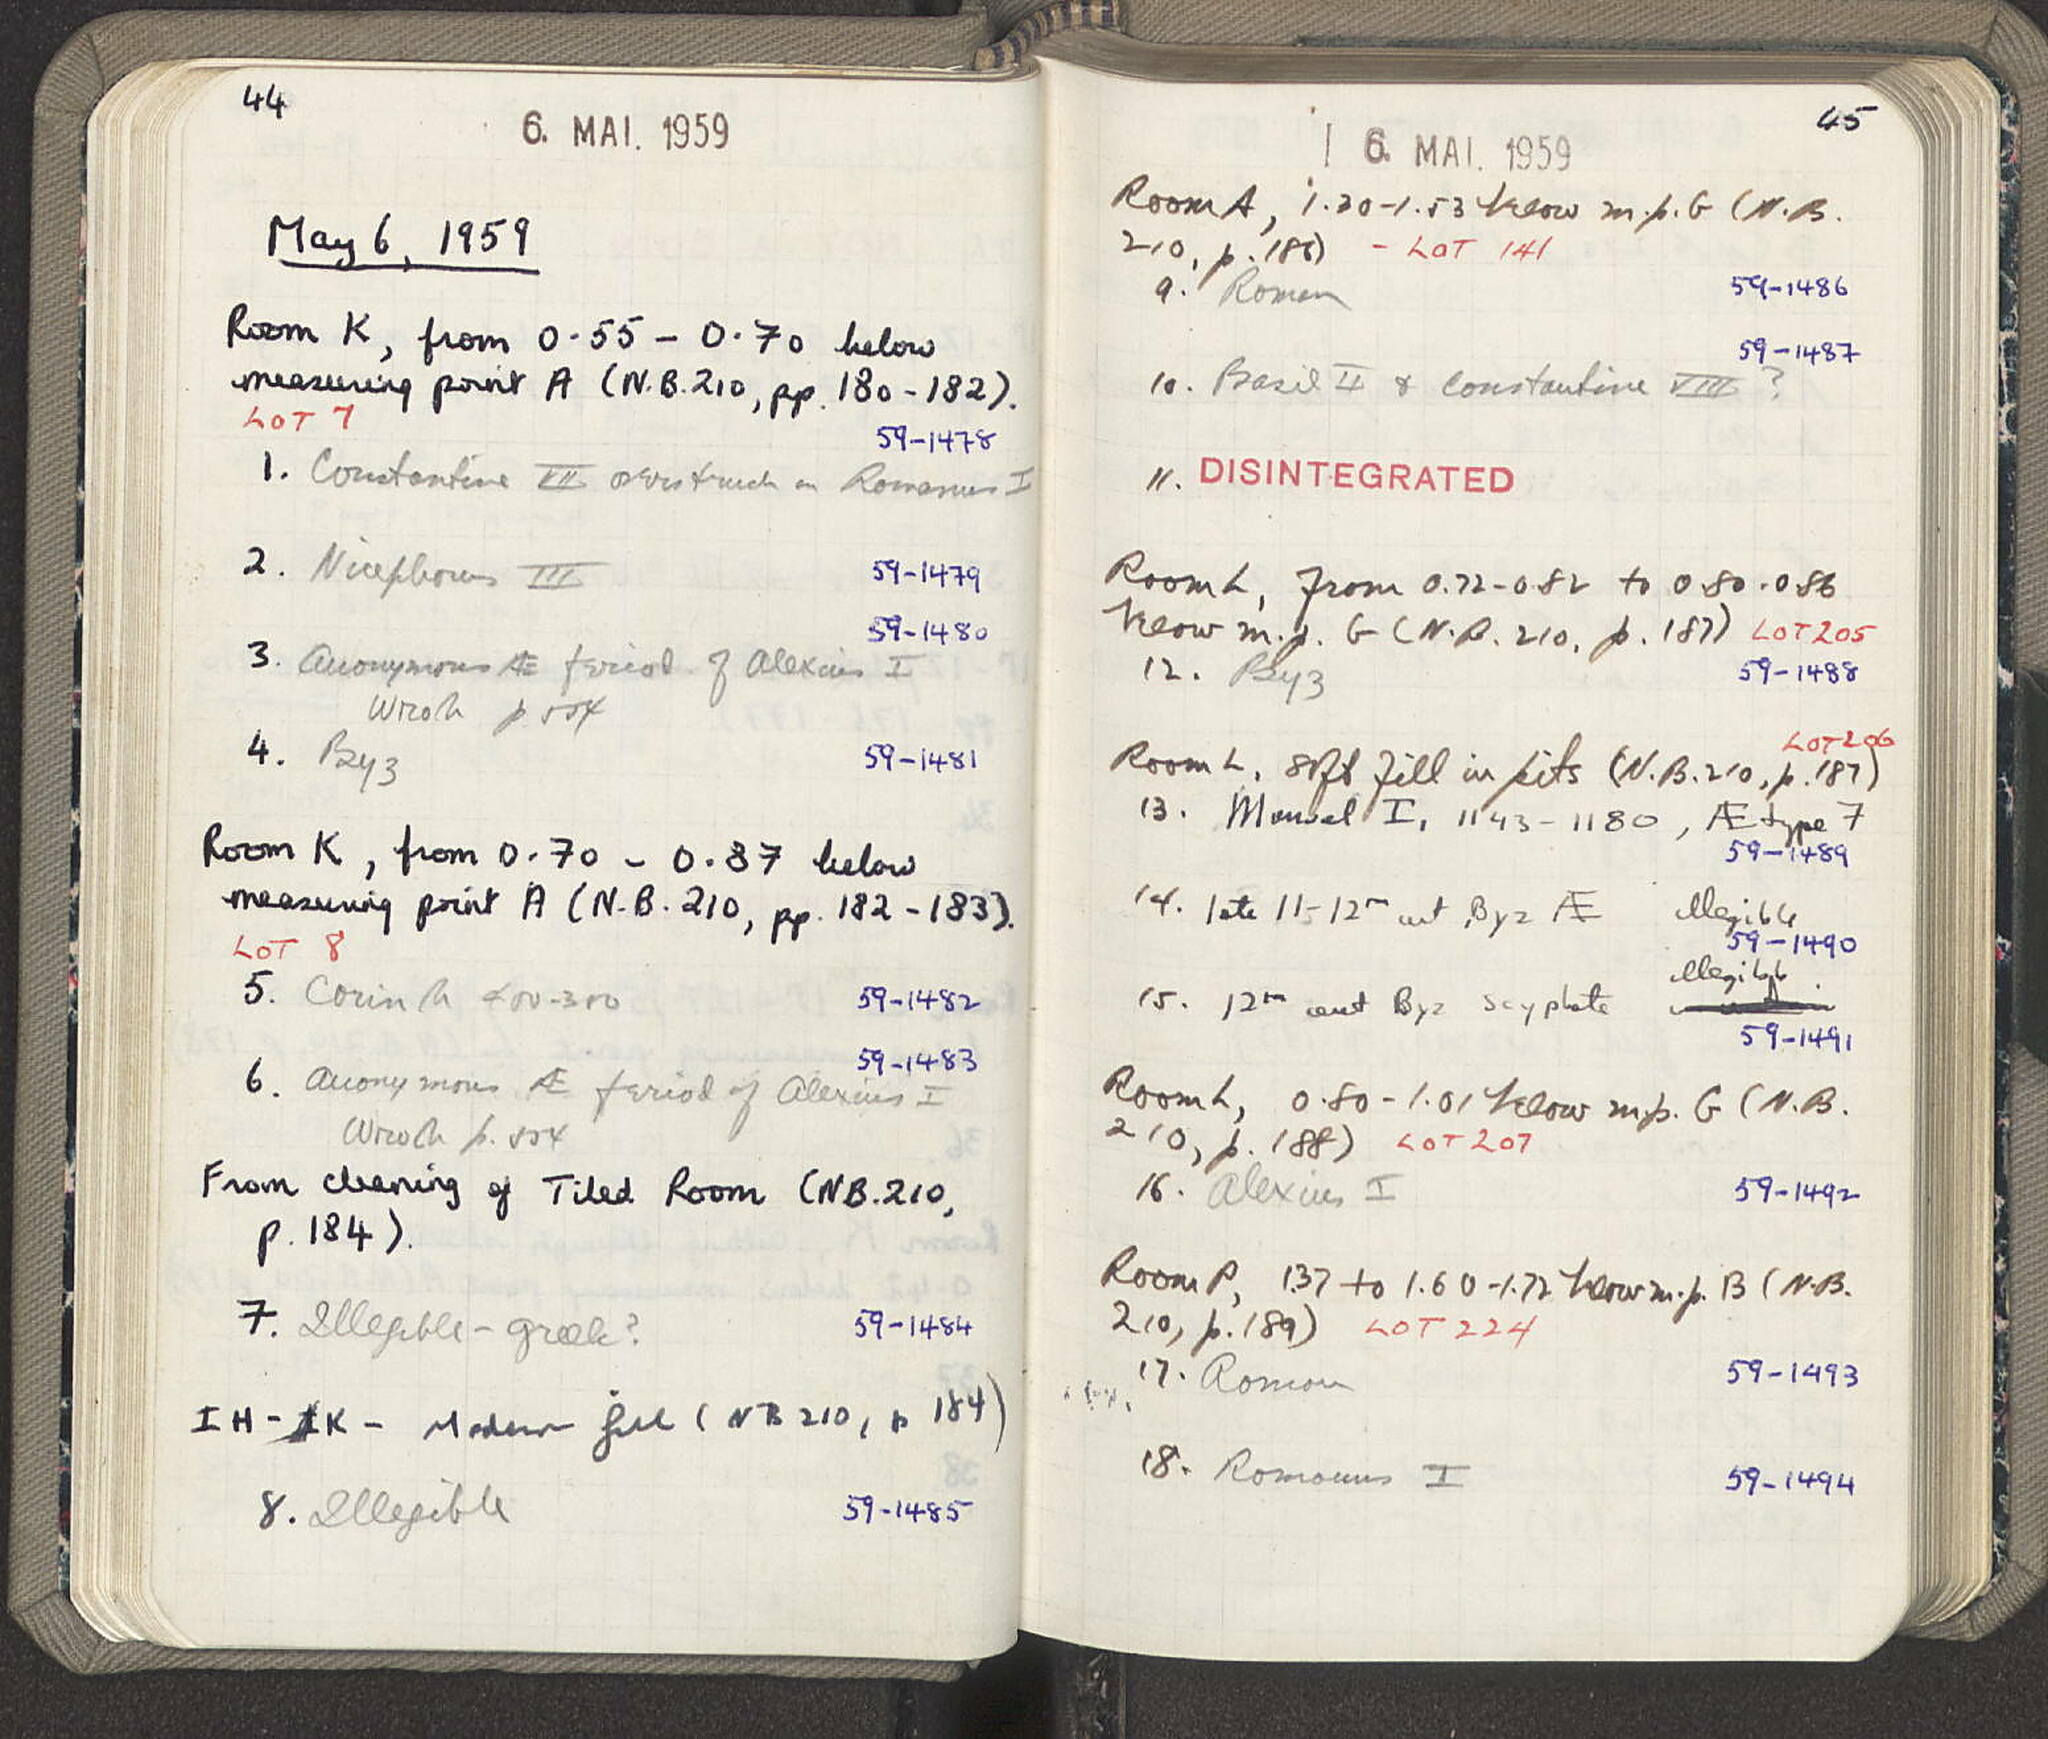 44
6. MAI. 1959
May 6, 1959
Room K, from 0.55 - 0.70 below
measuring point A (N.B.210, pp. 180-182).
LOT 7
59-1478
1. Constantine VII overstruck on Romanus I
2. Nicephorus III 59-1479
59-1480
3. Anonymous Æ period of Alexius I
Wroth p. 554
4. Byz 59-1481
Room K, from 0.70 - 0.87 below
measuring point A (N.B.210, pp. 182-183).
LOT 8
5. Corinth 400-300 59-1482
59-1483
6. Anonymous Æ period of Alexius I
Wroth p. 554
From cleaning of Tiled Room (NB.210,
p. 184).
7. Illegible - Greek? 59-1484
IH-IK - Modern fill (NB 210, p 184)
8. Illegible 59-1485
45
6. MAI. 1959
Room A, 1.30-1.53 below m.p. G (N.B.
210, p. 186) - LOT 141
9. Roman 59-1486
59-1487
10. Basil II & Constantine VIII ?
11. DISINTEGRATED
Room L, from 0.72-0.82 to 0.80-0.86
below m.p. G (N.B. 210, p. 187) LOT 205
12. Byz 59-1488
LOT 206
Room L, soft fill in pits (N.B.210, p.187)
13. Manuel I, 1143-1180, Æ type 7
59-1489
14. late 11-12th cent Byz Æ illegible
59-1490
illegible
15. 12th cent Byz scyphate
59-1491
Room L, 0.80-1.01 below m.p. G (N.B.
210, p. 188) LOT 207
16. Alexius I 59-1492
Room P, 1.37 to 1.60-1.72 below m.p. B (N.B.
210, p. 189) LOT 224
17. Roman 59-1493
18. Romanus I 59-1494